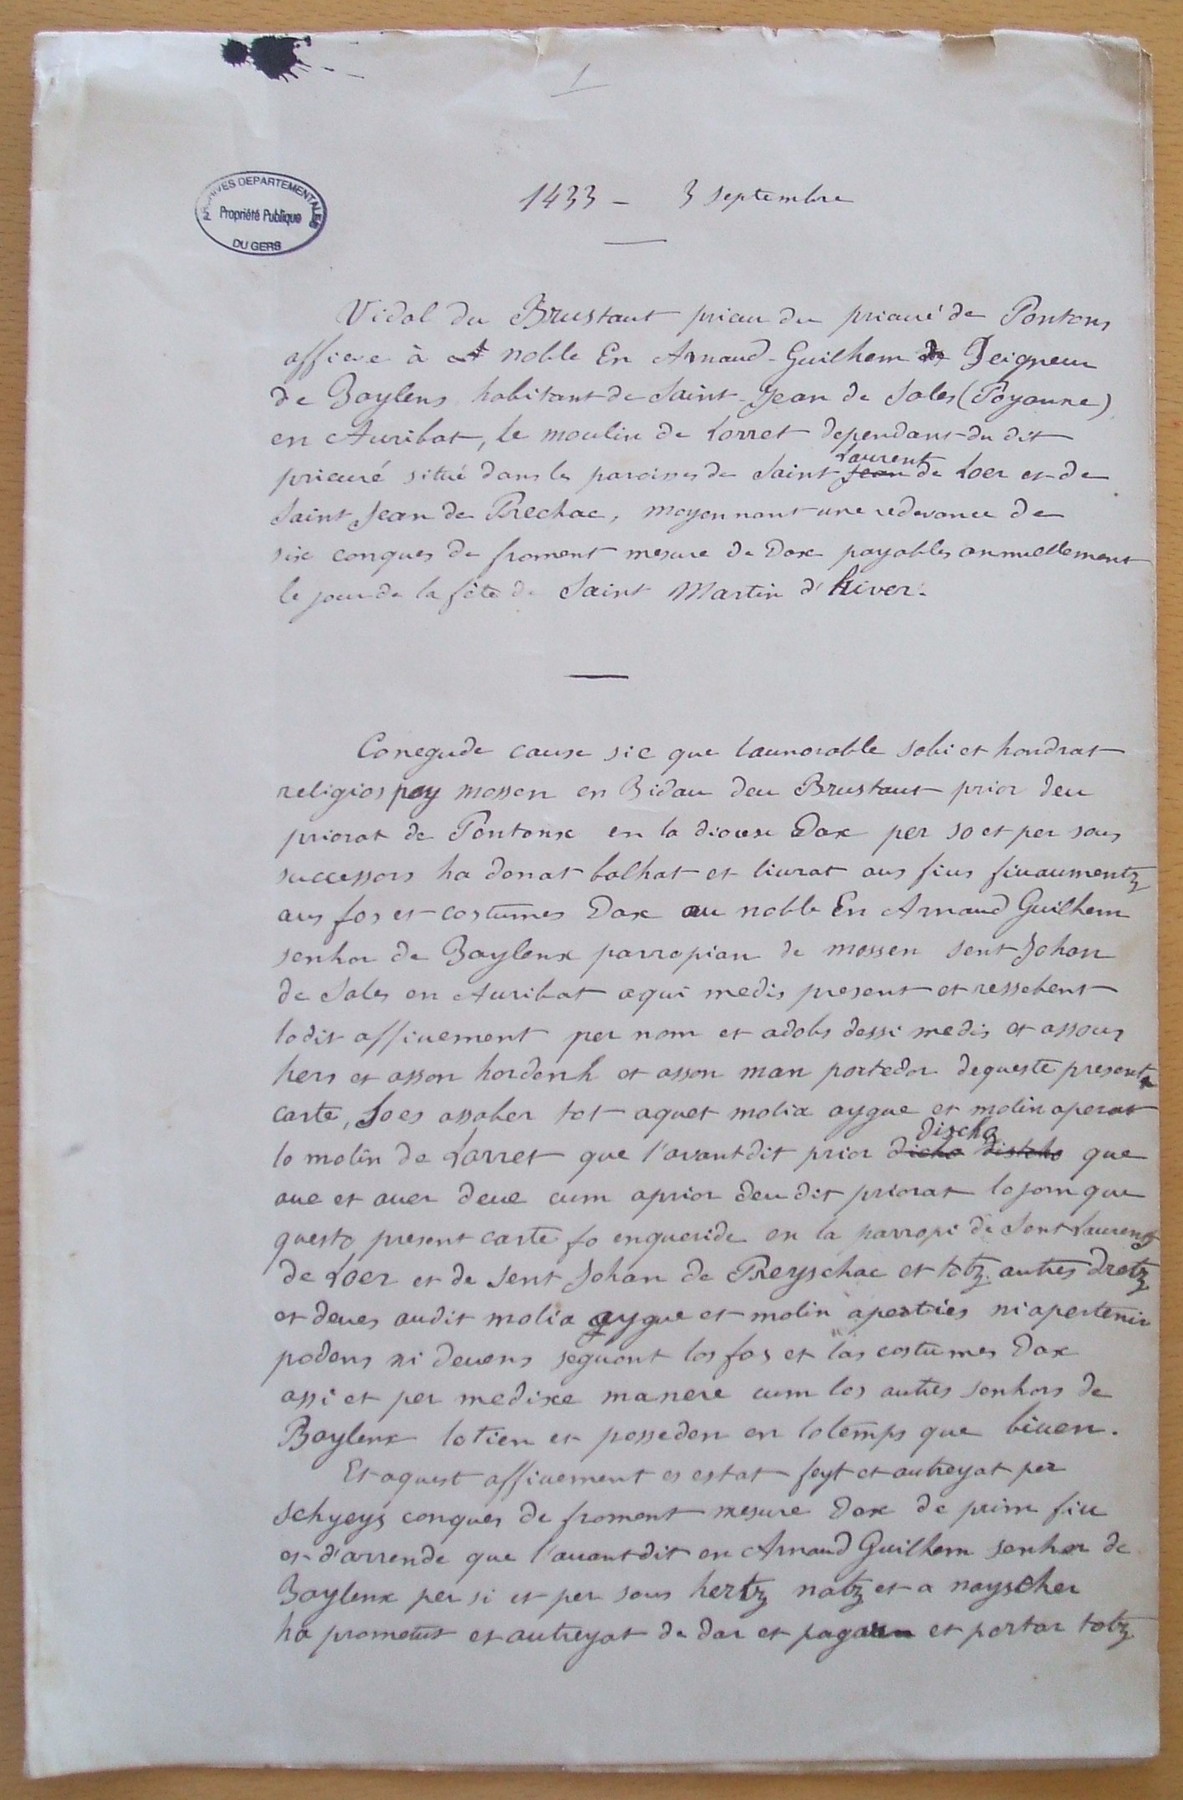 1
ARCHIVES DEPARTEMENTALES
Propriété Publique
DU GERS
1433 - 3 septembre
Vidal du Brustaut prieur du prieuré de Pontons
affieve à noble En Arnaud-Guilhem Seigneur
de Baylens habitant de Saint-Jean de Sales (Poyanne)
en Auribat, le moulin de Lorret dependant du dit
prieuré situé dans les paroisses de Saint Jean Laurent de Loer et de
Saint Jean de Prechac, moyennant une redevance de
six conques de froment mesure de Dax payables annuellement
le jour de la fête de Saint Martin d'hiver.
Conegude cause sie que l'aunorable sobi et hondrat
religios mossen en Bidau deu Brustaut prior deu
priorat de Pontonx en la diocese Dax per so et per sous
successors ha donat balhat et liurat aus fius fiuaumentz
aus fos et costumes Dax au noble En Arnaud Guilhem
senhor de Baylenx parropian de mossen sent Johan
de Sales en Auribat aqui medis present et ressebent
lodit affiuement per nom et adobs dessi medis et assous
hers et asson hordenh et asson man portedor dequeste present
carte, So es assaber tot aquet molia aygue et molin aperat
lo molin de Larret que l'avantdit prior dicho distcho discho que
ave et aver deve cum a prior deudit priorat lo jorn que
queste present carte fo enqueride en la parropi de Sent Laurens
de Loer et de Sent Johan de Preyschac et totz autres dretz
et deves audit molia aygue et molin apertiēs ni apertenir
podens ni devens seguont los fos et las costumes Dax
assi et per medixe manere cum los autres senhors de
Baylenx lo tien et posseden en lo temps que biuen.
Et aquest affiuement es estat feyt et autreyat per
schyeys conques de froment mesure Dax de prim fiu
et d'arrende que l'auantdit en Arnaud Guilhem senhor de
Baylenx per si et per sous hertz natz et a nayscher
ha prometut et autreyat de dar et pagar et portar totz